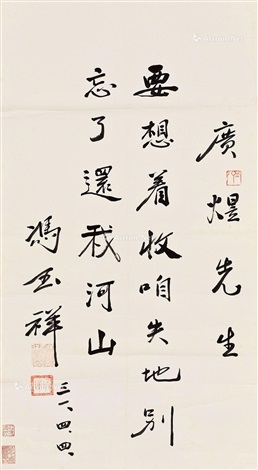 廣煜先生
要想着收咱失地別
忘了還我河山
馮玉祥
三一、四、四、